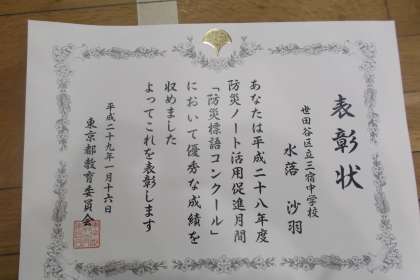 表彰状
世田谷区立三宿中学校
水落 沙羽
あなたは平成二十八年度
防災ノート活用促進月間
「防災標語コンクール」
において優秀な成績を
収めました
よってこれを表彰します
平成二十九年一月十六日
東京都教育委員会